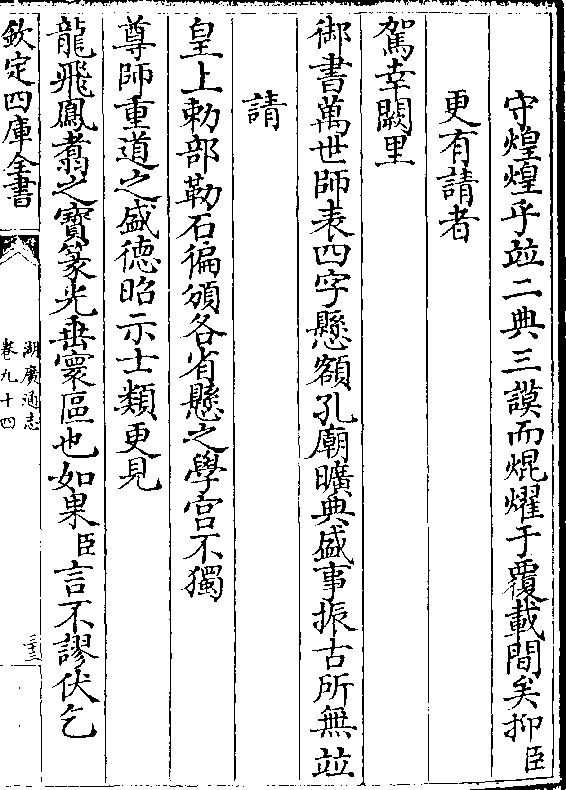 守煌煌乎竝二典三謨而焜燿于覆載間矣抑臣
更有請者
駕幸闕里
御書萬世師表四字懸額孔廟曠典盛事振古所無竝
請
皇上勅部勒石徧頒各省懸之學宫不獨
尊師重道之盛徳昭示士類更見
龍飛鳳翥之寶篆光垂寰區也如果臣言不謬伏乞
欽定四庫全書
湖廣通志
卷九十四
三十三